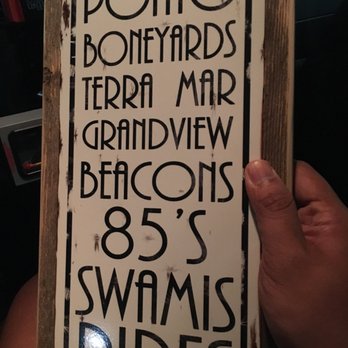 PONTO
BONEYARDS
TERRA MAR
GRANDVIEW
BEACONS
85'S
SWAMIS
PIPES